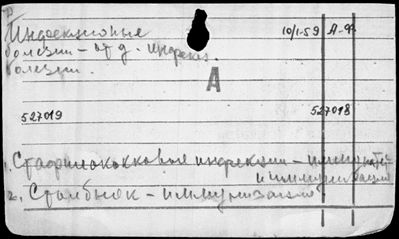 Инфекционные 10/1-59 А-Ф
болезни - от д. инфекц.
болезни.
А
527019 527018
1. Стафилококковые инфекции - иммунитет
и иммунизация
2. Столбняк - иммунизация